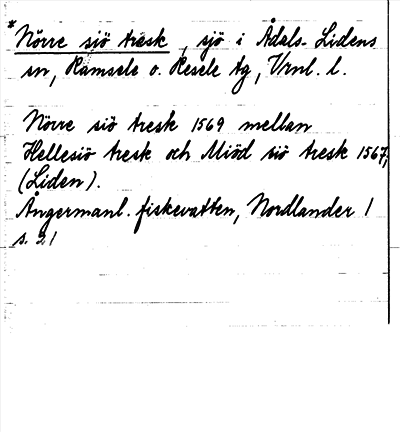 * Nörre siö tresk, sjö i Ådals-Lidens
sn, Ramsele o. Resele tg, Vrnl. l.
Nörre siö tresk 1569 mellan
Hellesiö tresk och Miöd siö tresk 1567,
(Liden).
Ångermanl. fiskevatten, Nordlander 1
s. 21